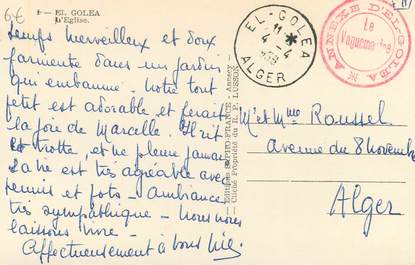 6€
1 - EL GOLEA
L'Eglise.
Temps merveilleux et doux
farniente dans un jardin
qui embaume. Notre tout
petit est adorable et ferait
la joie de Marcelle. Il rit
et trotte, et ne pleure jamais
La vie est très agréable avec
tennis et foto - Ambiance
très sympathique - Nous nous
laissons vivre -
Affectueusement à vous
Editions EPHO-FRANCE - Annecy -
Cliché Propriété du R. P. LUSSON
EL-GOLEA
11 *
4 - 4
ALGER
ANNEXE D'EL-GOLEA
Le
Vaguemestre
Mr et Mme Roussel
Avenue du 8 Novembre
Alger